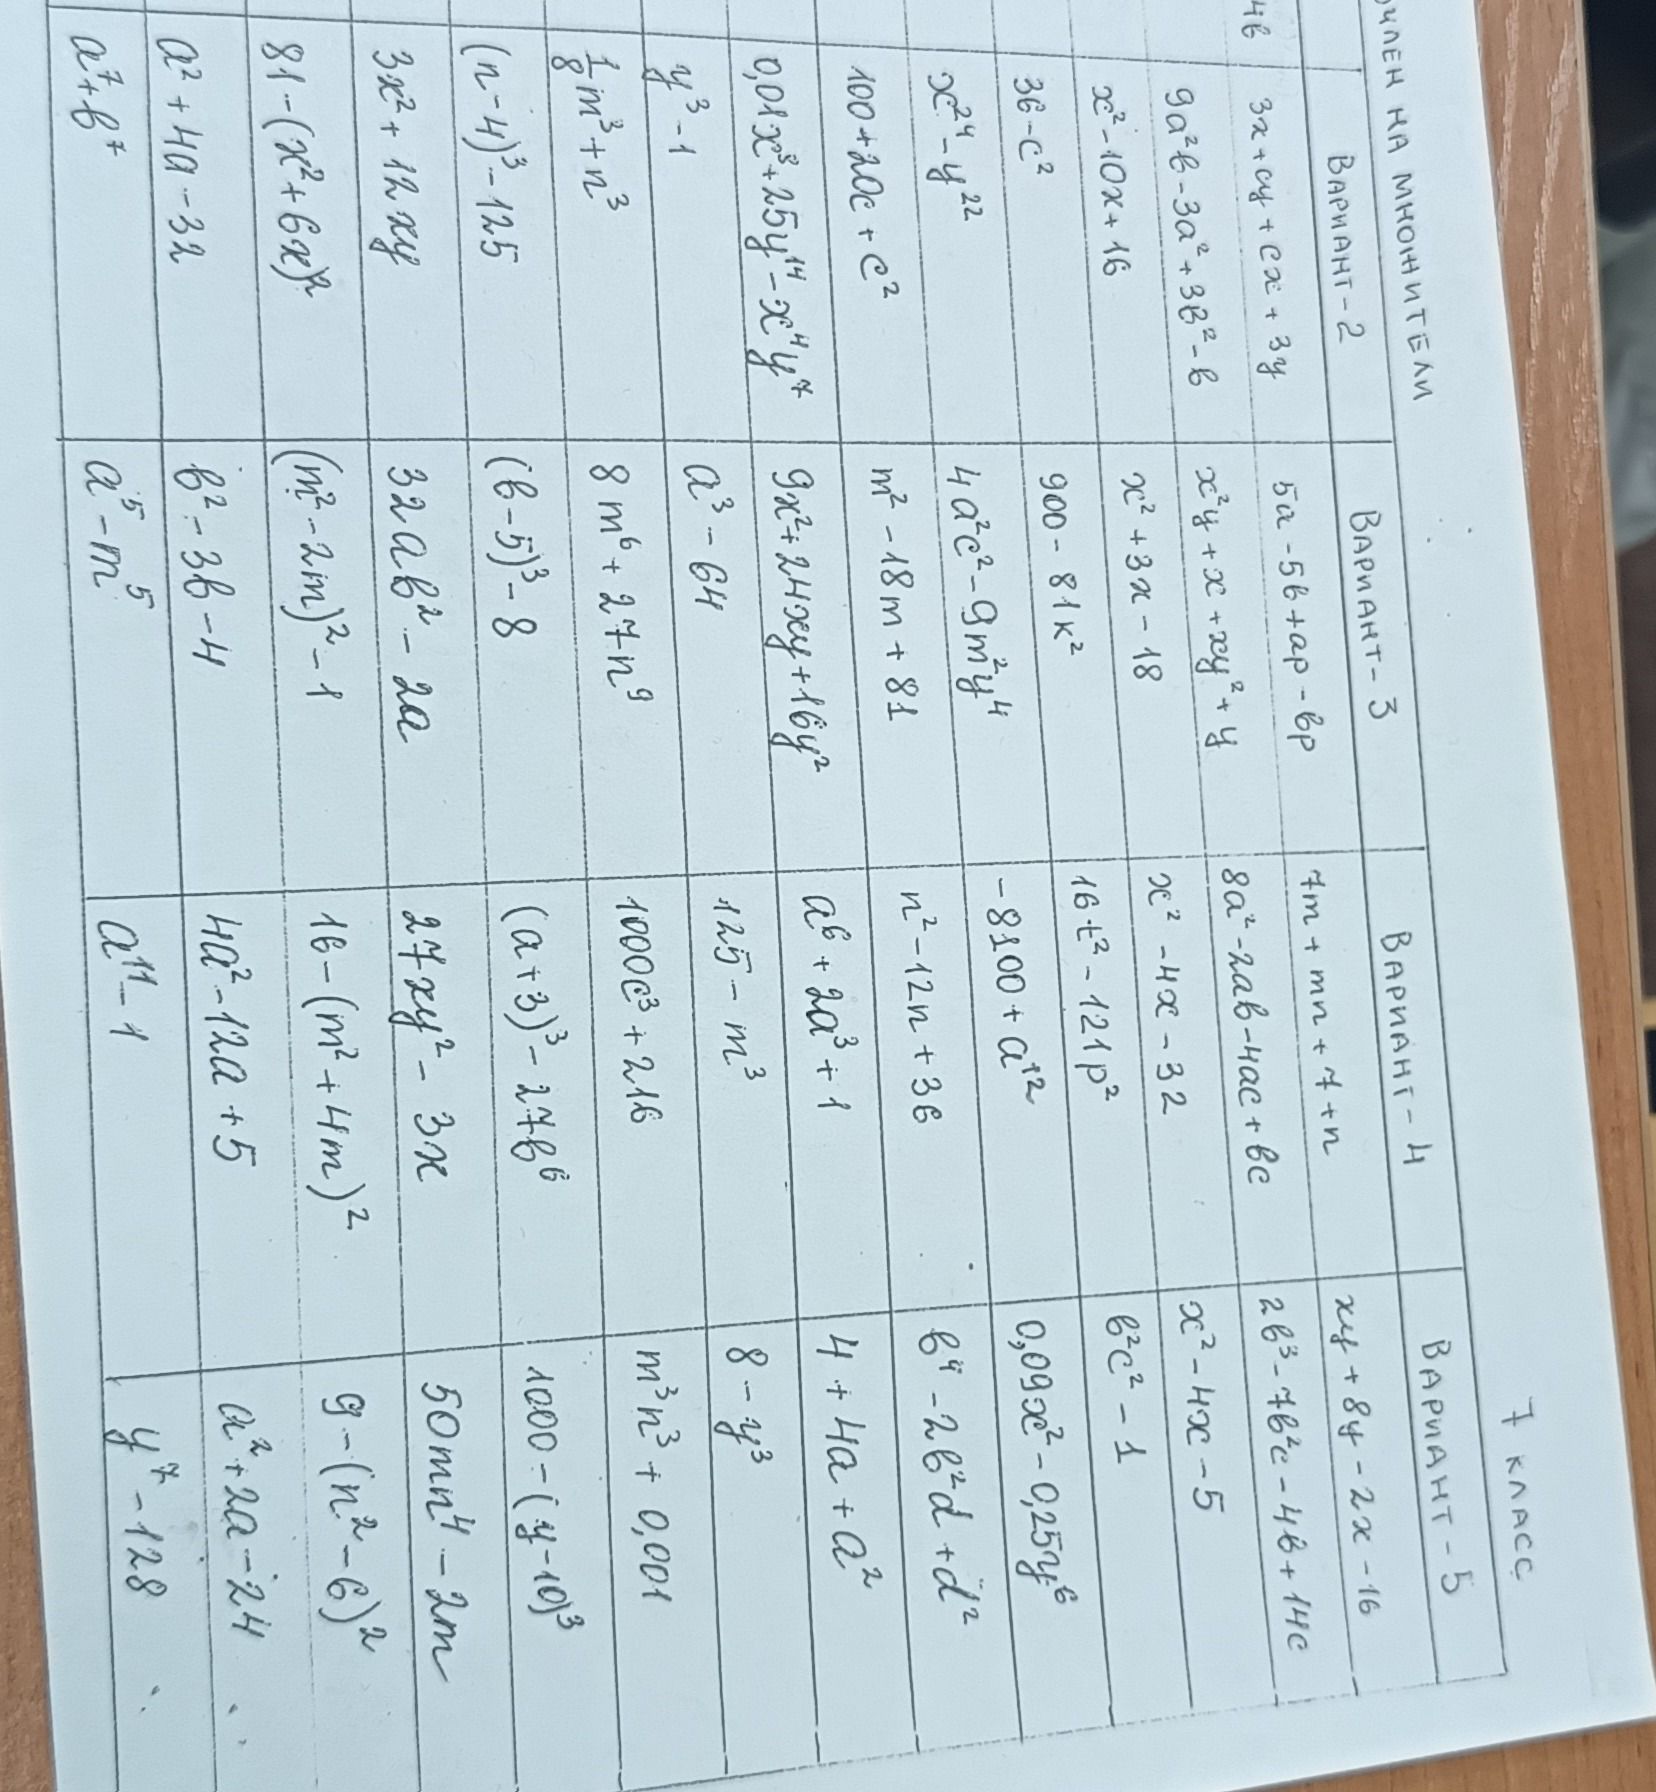 7 КЛАСС
НА МНОЖИТЕЛИ
ВАРИАНТ-2 ВАРИАНТ-3 ВАРИАНТ-4 ВАРИАНТ-5
4в 3x+cy+cx+3y 5a-5в+ap-вp 7m+mn+7+n xy+8y-2x-16
9a²в-3a²+3в²-в x²y+x+xy²+y 8a²-2aв-4ac+вc 2в³-7в²c-4в+14c
x²-10x+16 x²+3x-18 x²-4x-32 x²-4x-5
36-c² 900-81к² 16t²-121p² в²c²-1
x²⁴-y²² 4a²c²-9m²y⁴ -8100+a¹² 0,09x²-0,25y⁶
100+20c+c² m²-18m+81 n²-12n+36 в⁴-2в²d+d²
0,01x⁸+25y¹⁴-x⁴y⁷ 9x²+24xy+16y² a⁶+2a³+1 4+4a+a²
y³-1 a³-64 125-m³ 8-y³
1/8m³+n³ 8m⁶+27n⁹ 1000c³+216 m³n³+0,001
(n-4)³-125 (в-5)³-8 (a+3)³-27в⁶ 1000-(y-10)³
3x²+12xy 32aв²-2a 27xy²-3x 50mn⁴-2m
81-(x²+6x)² (m²-2m)²-1 16-(m²+4m)² 9-(n²-6)²
a²+4a-32 в²-3в-4 4a²-12a+5 a²+2a-24
a⁷+в⁷ a⁵-m⁵ a¹¹-1 y⁷-128